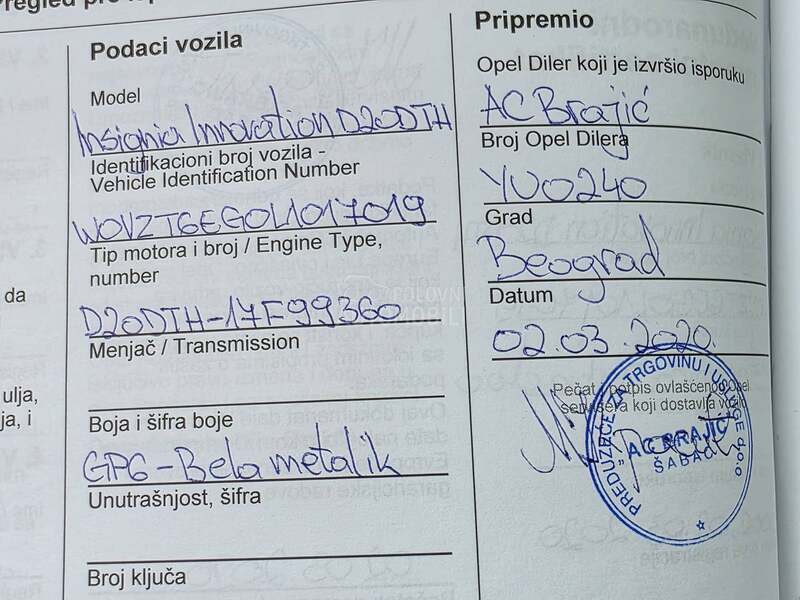 Podaci vozila
Model
Insignia Innovation D20DTH
Identifikacioni broj vozila -
Vehicle Identification Number
W0VZT6EG0L1017019
Tip motora i broj / Engine Type,
number
D20DTH-17F99360
Menjač / Transmission
Boja i šifra boje
GPG-Bela metalik
Unutrašnjost, šifra
Broj ključa
Pripremio
Opel Diler koji je izvršio isporuku
AC Brajić
Broj Opel Dilera
YU0240
Grad
Beograd
Datum
02.03.2020.
Pečat i potpis ovlašćenog Opel
servisera koji dostavlja vozilo
PREDUZEĆE ZA TRGOVINU I USLUGE d.o.o
"AC BRAJIĆ"
ŠABAC
da
ulja,
ja, i